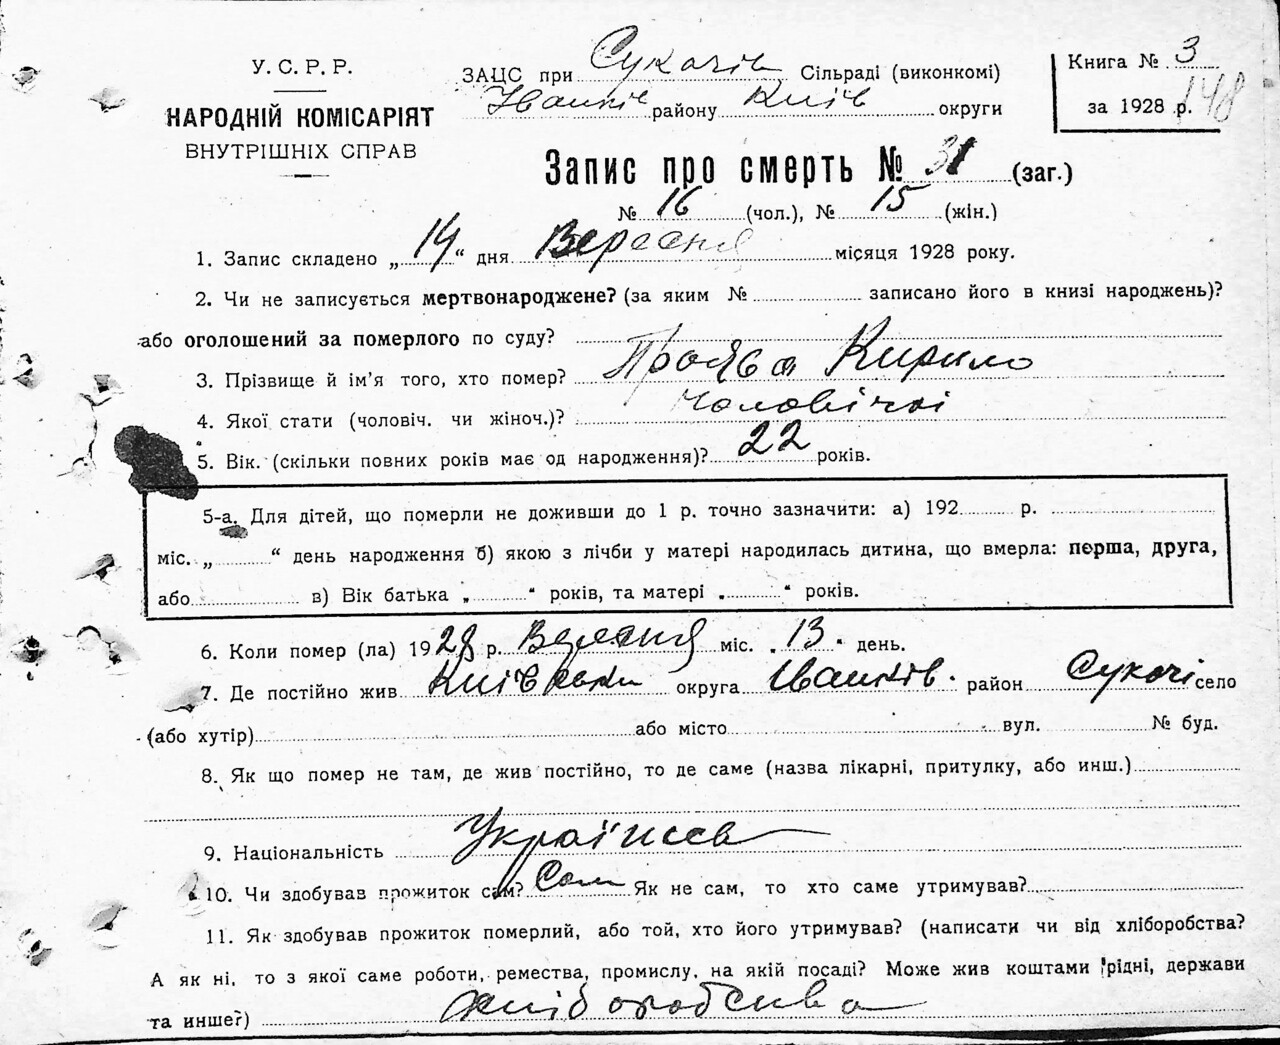 У. С. Р. Р.
НАРОДНІЙ КОМІСАРІЯТ
ВНУТРІШНІХ СПРАВ
ЗАЦС при Сукачів Сільраді (виконкомі)
Іванків району Київ округи
Книга № 3
за 1928 р. 148
Запис про смерть № 31 (заг.)
№ 16 (чол.), № 15 (жін.)
1. Запис складено „ 14 “ дня Вересня місяця 1928 року.
2. Чи не записується мертвонароджене? (за яким № записано його в книзі народжень)?
або оголошений за померлого по суду?
3. Прізвище й ім'я того, хто помер? Кирило
4. Якої стати (чоловіч. чи жіноч.)? чоловічої
5. Вік. (скільки повних років має од народження)? 22 років.
5-а. Для дітей, що померли не доживши до 1 р. точно зазначити: а) 192 р.
міс. „ “ день народження б) якою з лічби у матері народилась дитина, що вмерла: перша, друга,
або в) Вік батька „ “ років, та матері „ “ років.
6. Коли помер (ла) 1928 р. Вересня міс. „ 13 “ день.
7. Де постійно жив Київськи округа Іванків. район Сукачі село
(або хутір) або місто вул. № буд.
8. Як що помер не там, де жив постійно, то де саме (назва лікарні, притулку, або инш.)
9. Національність Українець
10. Чи здобував прожиток сам? Сам Як не сам, то хто саме утримував?
11. Як здобував прожиток померлий, або той, хто його утримував? (написати чи від хліборобства?
А як ні, то з якої саме роботи, ремества, промислу, на якій посаді? Може жив коштами рідні, держави
та инше?) хліборобства